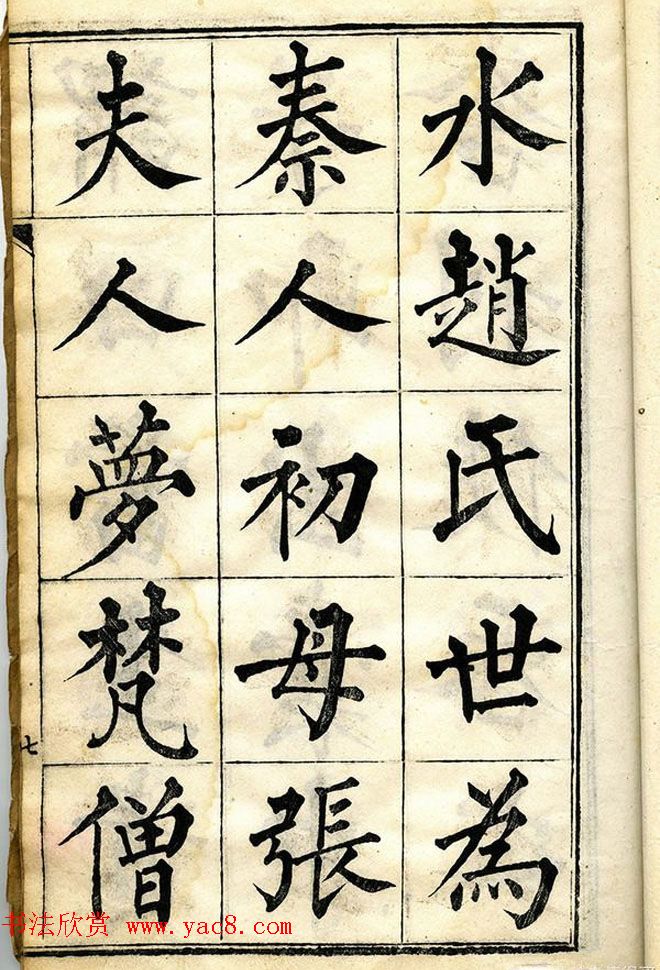 水趙氏世為
秦人初母張
夫人夢梵僧
七
书法欣赏 www.yac8.com